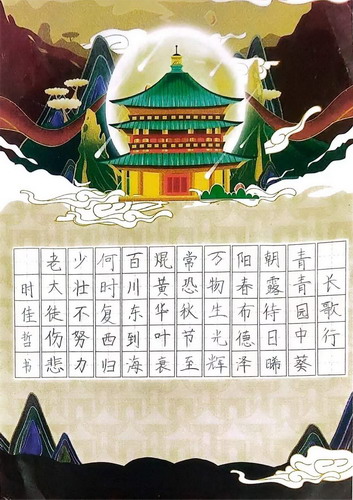 长歌行
青青园中葵
朝露待日晞
阳春布德泽
万物生光辉
常恐秋节至
焜黄华叶衰
百川东到海
何时复西归
少壮不努力
老大徒伤悲
时佳哲书